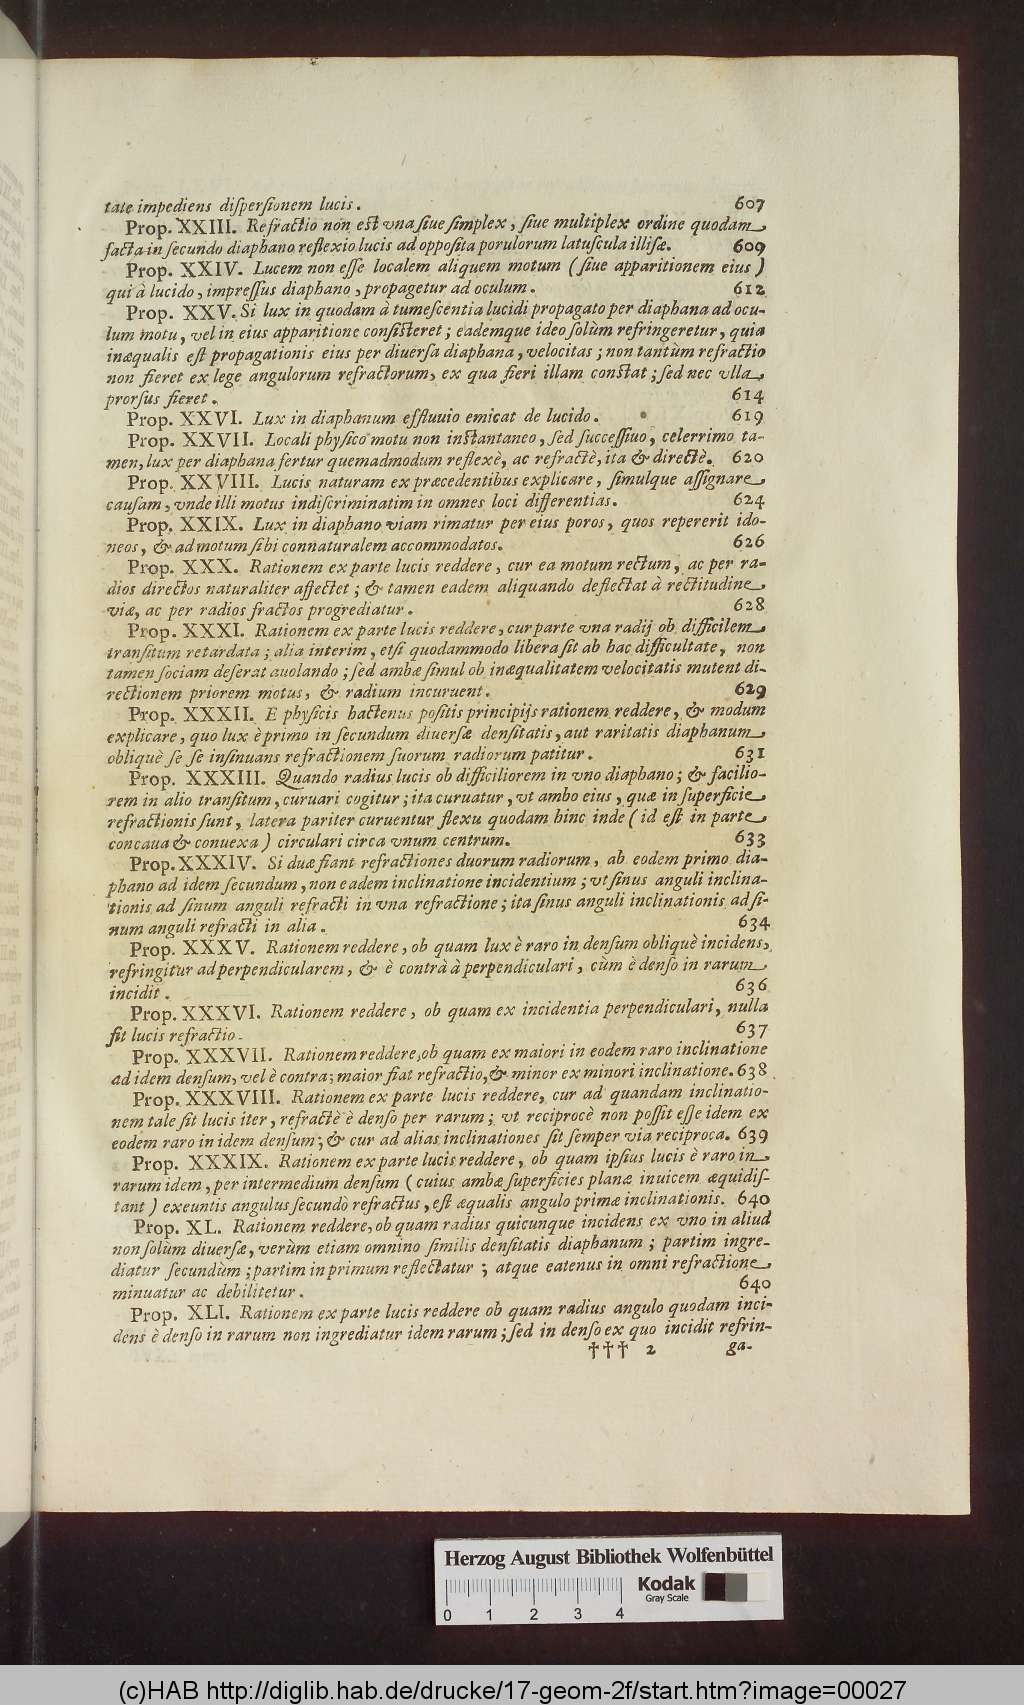 tate impediens diſperſionem lucis. 607
Prop. XXIII. Refractio non eſt vna ſiue ſimplex, ſiue multiplex ordine quodam
facta in ſecundo diaphano reflexio lucis ad oppoſita porulorum latuſcula illiſæ. 609
Prop. XXIV. Lucem non eſſe localem aliquem motum (ſiue apparitionem eius)
qui à lucido, impreſſus diaphano, propagetur ad oculum. 612
Prop. XXV. Si lux in quodam à tumeſcentia lucidi propagato per diaphana ad ocu-
lum motu, vel in eius apparitione conſiſteret; eademque ideo ſolùm refringeretur, quia
inæqualis eſt propagationis eius per diuerſa diaphana, velocitas; non tantùm refractio
non fieret ex lege angulorum refractorum, ex qua fieri illam conſtat; ſed nec vlla
prorſus fieret. 614
Prop. XXVI. Lux in diaphanum effluuio emicat de lucido. 619
Prop. XXVII. Locali phyſico motu non inſtantaneo, ſed ſucceſſiuo, celerrimo ta-
men, lux per diaphana fertur quemadmodum reflexè, ac refractè, ita & directè. 620
Prop. XXVIII. Lucis naturam ex præcedentibus explicare, ſimulque aſſignare
cauſam, vnde illi motus indiſcriminatim in omnes loci differentias. 624
Prop. XXIX. Lux in diaphano viam rimatur per eius poros, quos repererit ido-
neos, & ad motum ſibi connaturalem accommodatos. 626
Prop. XXX. Rationem ex parte lucis reddere, cur ea motum rectum, ac per ra-
dios directos naturaliter affectet; & tamen eadem aliquando deflectat à rectitudine
viæ, ac per radios fractos progrediatur. 628
Prop. XXXI. Rationem ex parte lucis reddere, cur parte vna radij ob difficilem
tranſitum retardata; alia interim, etſi quodammodo libera ſit ab hac difficultate, non
tamen ſociam deſerat auolando; ſed ambæ ſimul ob inæqualitatem velocitatis mutent di-
rectionem priorem motus, & radium incuruent. 629
Prop. XXXII. E phyſicis hactenus poſitis principijs rationem reddere, & modum
explicare, quo lux è primo in ſecundum diuerſæ denſitatis, aut raritatis diaphanum
obliquè ſe ſe inſinuans refractionem ſuorum radiorum patitur. 631
Prop. XXXIII. Quando radius lucis ob difficiliorem in vno diaphano; & facilio-
rem in alio tranſitum, curuari cogitur; ita curuatur, vt ambo eius, quæ in ſuperficie
refractionis ſunt, latera pariter curuentur flexu quodam hinc inde (id eſt in parte
concaua & conuexa) circulari circa vnum centrum. 633
Prop. XXXIV. Si duæ fiant refractiones duorum radiorum, ab eodem primo dia-
phano ad idem ſecundum, non eadem inclinatione incidentium; vt ſinus anguli inclina-
tionis ad ſinum anguli refracti in vna refractione; ita ſinus anguli inclinationis ad ſi-
num anguli refracti in alia. 634
Prop. XXXV. Rationem reddere, ob quam lux è raro in denſum obliquè incidens,
refringitur ad perpendicularem, & è contrà à perpendiculari, cùm è denſo in rarum
incidit. 636
Prop. XXXVI. Rationem reddere, ob quam ex incidentia perpendiculari, nulla
fit lucis refractio. 637
Prop. XXXVII. Rationem reddere, ob quam ex maiori in eodem raro inclinatione
ad idem denſum, vel è contra; maior fiat refractio, & minor ex minori inclinatione. 638
Prop. XXXVIII. Rationem ex parte lucis reddere, cur ad quandam inclinatio-
nem tale ſit lucis iter, refractè è denſo per rarum; vt reciprocè non poſſit eſſe idem ex
eodem raro in idem denſum; & cur ad alias inclinationes ſit ſemper via reciproca. 639
Prop. XXXIX. Rationem ex parte lucis reddere, ob quam ipſius lucis è raro in
rarum idem, per intermedium denſum (cuius ambæ ſuperficies planæ inuicem æquidiſ-
tant) exeuntis angulus ſecundò refractus, eſt æqualis angulo primæ inclinationis. 640
Prop. XL. Rationem reddere, ob quam radius quicunque incidens ex vno in aliud
non ſolùm diuerſæ, verùm etiam omnino ſimilis denſitatis diaphanum; partim ingre-
diatur ſecundum; partim in primum reflectatur; atque eatenus in omni refractione
minuatur ac debilitetur. 640
Prop. XLI. Rationem ex parte lucis reddere ob quam radius angulo quodam inci-
dens è denſo in rarum non ingrediatur idem rarum; ſed in denſo ex quo incidit refrin-
††† 2 ga-
Herzog August Bibliothek Wolfenbüttel
Kodak
Gray Scale
0 1 2 3 4
(c)HAB http://diglib.hab.de/drucke/17-geom-2f/start.htm?image=00027